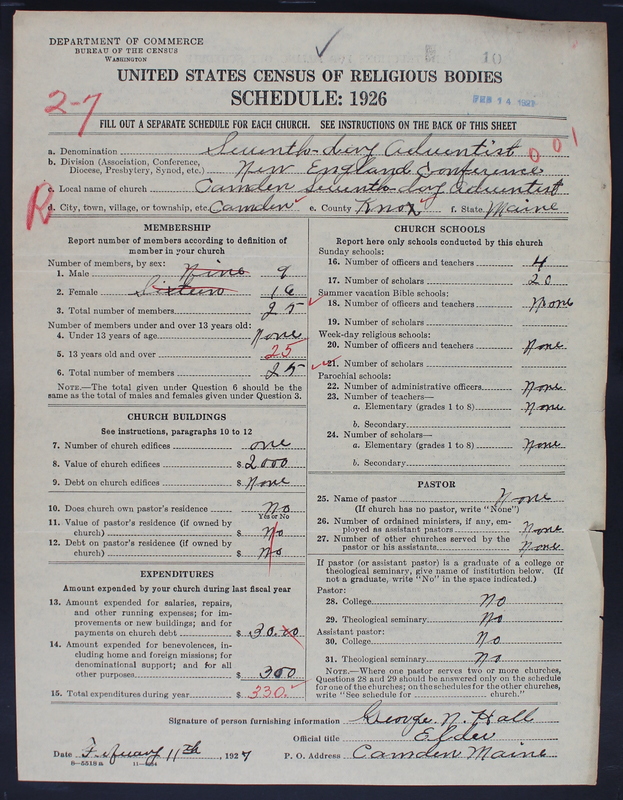 DEPARTMENT OF COMMERCE
BUREAU OF THE CENSUS
WASHINGTON
10
UNITED STATES CENSUS OF RELIGIOUS BODIES
SCHEDULE: 1926
2-7
FEB 14 1927
FILL OUT A SEPARATE SCHEDULE FOR EACH CHURCH. SEE INSTRUCTIONS ON THE BACK OF THIS SHEET
a. Denomination Seventh-day Adventist
001
b. Division (Association, Conference, Diocese, Presbytery, Synod, etc.) New England Conference
c. Local name of church Camden Seventh-day Adventist
R
d. City, town, village, or township, etc. Camden e. County Knox f. State Maine
MEMBERSHIP
Report number of members according to definition of member in your church
Number of members, by sex:
1. Male Nine 9
2. Female Sixteen 16
3. Total number of members 25
Number of members under and over 13 years old:
4. Under 13 years of age None
5. 13 years old and over 25
6. Total number of members 25
NOTE.—The total given under Question 6 should be the
same as the total of males and females given under Question 3.
CHURCH BUILDINGS
See instructions, paragraphs 10 to 12
7. Number of church edifices one
8. Value of church edifices $ 2000
9. Debt on church edifices $ None
10. Does church own pastor's residence No
Yes or No
11. Value of pastor's residence (if owned by
church) $ No
12. Debt on pastor's residence (if owned by
church) $ No
EXPENDITURES
Amount expended by your church during last fiscal year
13. Amount expended for salaries, repairs,
and other running expenses; for im-
provements or new buildings; and for
payments on church debt $ 30.00
14. Amount expended for benevolences, in-
cluding home and foreign missions; for
denominational support; and for all
other purposes $ 300
15. Total expenditures during year $ 330.
CHURCH SCHOOLS
Report here only schools conducted by this church
Sunday schools:
16. Number of officers and teachers 4
17. Number of scholars 20
Summer vacation Bible schools:
18. Number of officers and teachers None
19. Number of scholars
Week-day religious schools:
20. Number of officers and teachers None
21. Number of scholars
Parochial schools:
22. Number of administrative officers None
23. Number of teachers—
a. Elementary (grades 1 to 8) None
b. Secondary
24. Number of scholars—
a. Elementary (grades 1 to 8) None
b. Secondary
PASTOR
25. Name of pastor None
(If church has no pastor, write "None")
26. Number of ordained ministers, if any, em-
ployed as assistant pastors None
27. Number of other churches served by the
pastor or his assistants None
If pastor (or assistant pastor) is a graduate of a college or
theological seminary, give name of institution below. (If
not a graduate, write "No" in the space indicated.)
Pastor:
28. College No
29. Theological seminary No
Assistant pastor:
30. College No
31. Theological seminary No
NOTE.—Where one pastor serves two or more churches,
Questions 28 and 29 should be answered only on the schedule
for one of the churches; on the schedules for the other churches,
write "See schedule for church."
Signature of person furnishing information George N. Hall
Official title Elder
Date February 11th, 1927 P. O. Address Camden Maine